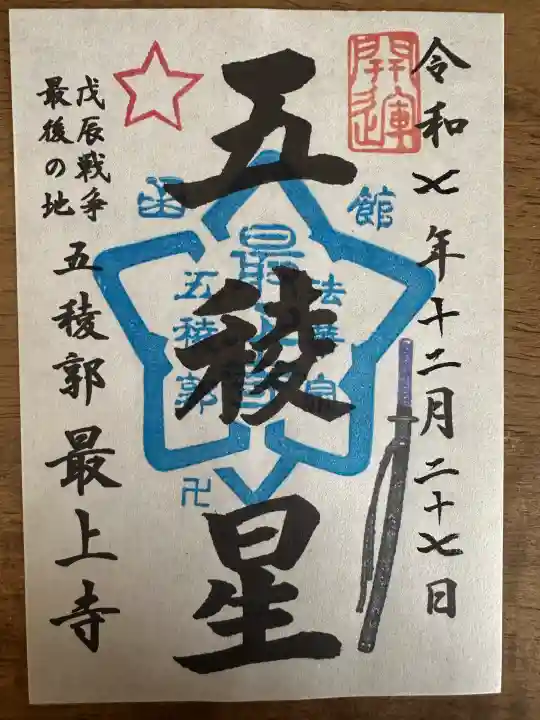 開運
令和七年十二月二十七日
五稜星
函館
法華宗
最上寺
五稜郭
卍
戊辰戦争
最後の地
五稜郭最上寺